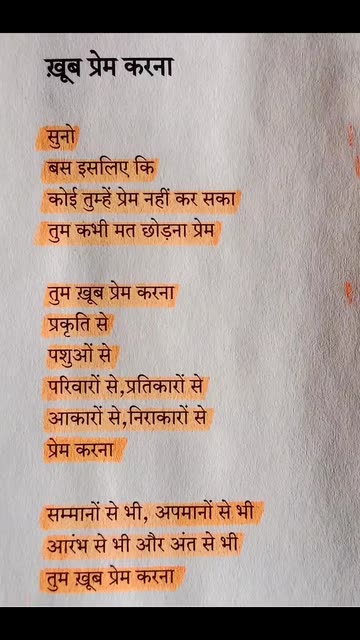 ख़ूब प्रेम करना
सुनो
बस इसलिए कि
कोई तुम्हें प्रेम नहीं कर सका
तुम कभी मत छोड़ना प्रेम
तुम ख़ूब प्रेम करना
प्रकृति से
पशुओं से
परिवारों से,प्रतिकारों से
आकारों से,निराकारों से
प्रेम करना
सम्मानों से भी, अपमानों से भी
आरंभ से भी और अंत से भी
तुम ख़ूब प्रेम करना